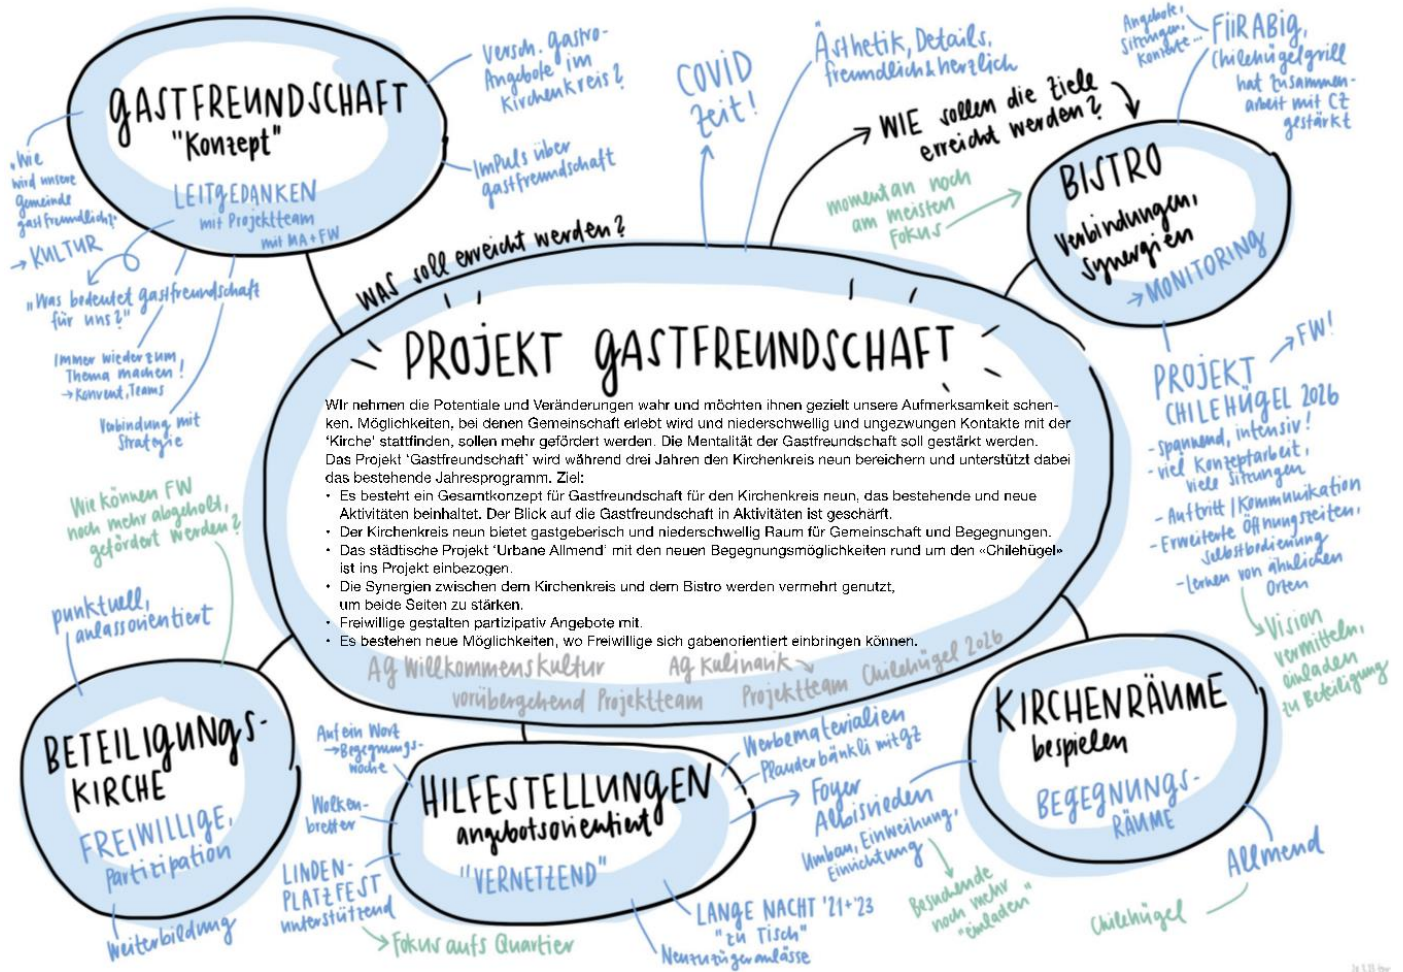 GASTFREUNDSCHAFT
"Konzept"
LEITGEDANKEN
mit Projektteam
mit MA+FW
versch. Gastro-
Angebote im
Kirchenkreis?
Impuls über
Gastfreundschaft
„Wie
wird unsere
Gemeinde
gastfreundlich?"
→ KULTUR
„Was bedeutet Gastfreundschaft
für uns?"
Immer wieder zum
Thema machen!
→ Konvent, Teams
Verbindung mit
Strategie
COVID
Zeit!
Ästhetik, Details,
freundlich & herzlich
WIE sollen die Ziele
erreicht werden?
momentan noch
am meisten
Fokus
Angebote,
Sitzungen,
Konzerte...
FIIRABIG,
Chilehügelgrill
hat Zusammen-
arbeit mit CZ
gestärkt
BISTRO
Verbindungen,
Synergien
→ MONITORING
WAS soll erreicht werden?
PROJEKT GASTFREUNDSCHAFT
Wir nehmen die Potentiale und Veränderungen wahr und möchten ihnen gezielt unsere Aufmerksamkeit schen-
ken. Möglichkeiten, bei denen Gemeinschaft erlebt wird und niederschwellig und ungezwungen Kontakte mit der
'Kirche' stattfinden, sollen mehr gefördert werden. Die Mentalität der Gastfreundschaft soll gestärkt werden.
Das Projekt 'Gastfreundschaft' wird während drei Jahren den Kirchenkreis neun bereichern und unterstützt dabei
das bestehende Jahresprogramm. Ziel:
• Es besteht ein Gesamtkonzept für Gastfreundschaft für den Kirchenkreis neun, das bestehende und neue
Aktivitäten beinhaltet. Der Blick auf die Gastfreundschaft in Aktivitäten ist geschärft.
• Der Kirchenkreis neun bietet gastgeberisch und niederschwellig Raum für Gemeinschaft und Begegnungen.
• Das städtische Projekt 'Urbane Allmend' mit den neuen Begegnungsmöglichkeiten rund um den «Chilehügel»
ist ins Projekt einbezogen.
• Die Synergien zwischen dem Kirchenkreis und dem Bistro werden vermehrt genutzt,
um beide Seiten zu stärken.
• Freiwillige gestalten partizipativ Angebote mit.
• Es bestehen neue Möglichkeiten, wo Freiwillige sich gabenorientiert einbringen können.
AG Willkommenskultur
AG Kulinarik →
Chilehügel 2026
vorübergehend Projektteam
Projektteam
→ FW!
PROJEKT
CHILEHÜGEL 2026
- spannend, intensiv!
- viel Konzeptarbeit,
viele Sitzungen
- Auftritt | Kommunikation
- Erweiterte Öffnungszeiten,
selbstbedienung
- lernen von ähnlichen
Orten
Vision
vermitteln,
einladen
zu Beteiligung
Wie können FW
noch mehr abgeholt,
gefördert werden?
punktuell,
anlassorientiert
BETEILIGUNGS-
KIRCHE
FREIWILLIGE,
Partizipation
Weiterbildung
Auf ein Wort
→ Begegnungs-
woche
Wolken-
bretter
LINDEN-
PLATZFEST
unterstützend
→ Fokus aufs Quartier
HILFESTELLUNGEN
angebotsorientiert
"VERNETZEND"
Werbematerialien
Plauderbänkli mit GZ
→ Foyer
Albisrieden
Umbau, Einweihung,
Einrichtung
Besuchende
noch mehr
"einladen"
LANGE NACHT '21+'23
"zu Tisch"
Neuzuzügeranlässe
KIRCHENRÄUME
bespielen
BEGEGNUNGS-
RÄUME
Allmend
Chilehügel